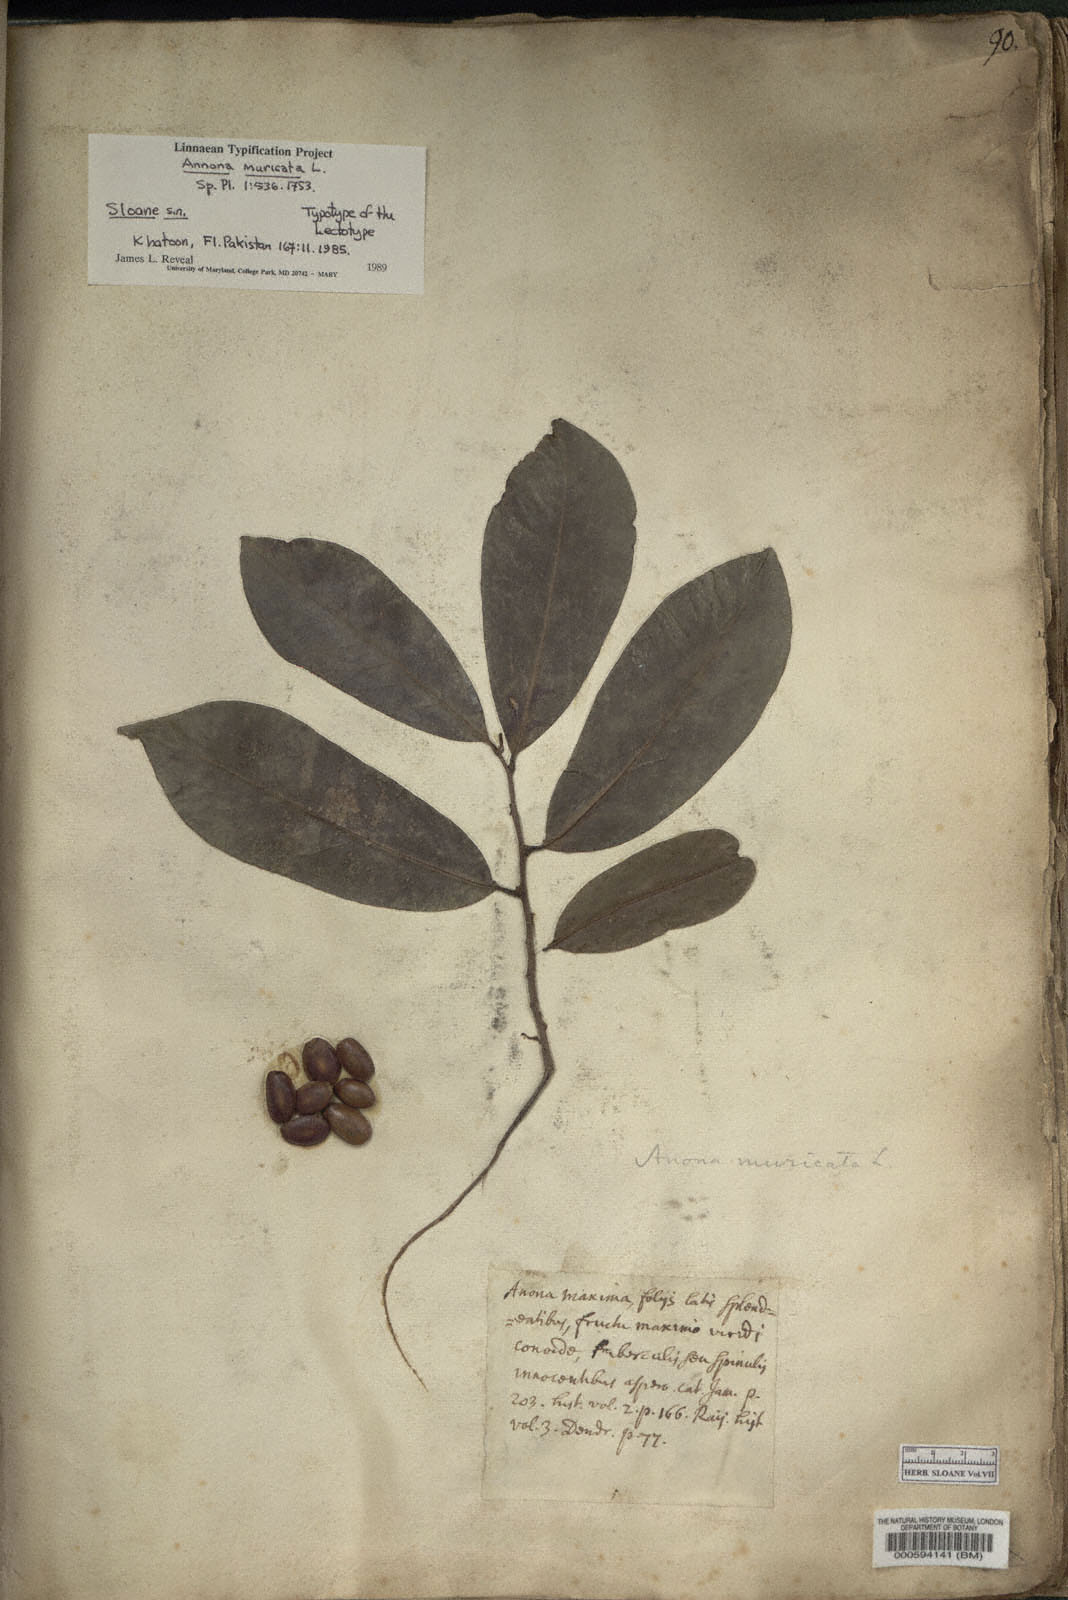 90.
Linnaean Typification Project
Annona muricata L.
Sp. Pl. 1:536. 1753.
Sloane s.n.
Typotype of the
Lectotype
Khatoon, Fl. Pakistan 167:11. 1985.
James L. Reveal
1989
University of Maryland, College Park, MD 20742 – MARY
Anona muricata L.
Anona maxima, folijs latis splend=
=entibus, fructu maximo viridi
conoide, tuberculis seu spinulis
innocentibus aspero. cat. Jam. p.
203. hist. vol. 2. p. 166. Raij. hist
vol. 3. Dendr. p. 77.
HERB. SLOANE Vol. VII
THE NATURAL HISTORY MUSEUM, LONDON
DEPARTMENT OF BOTANY
000594141 (BM)